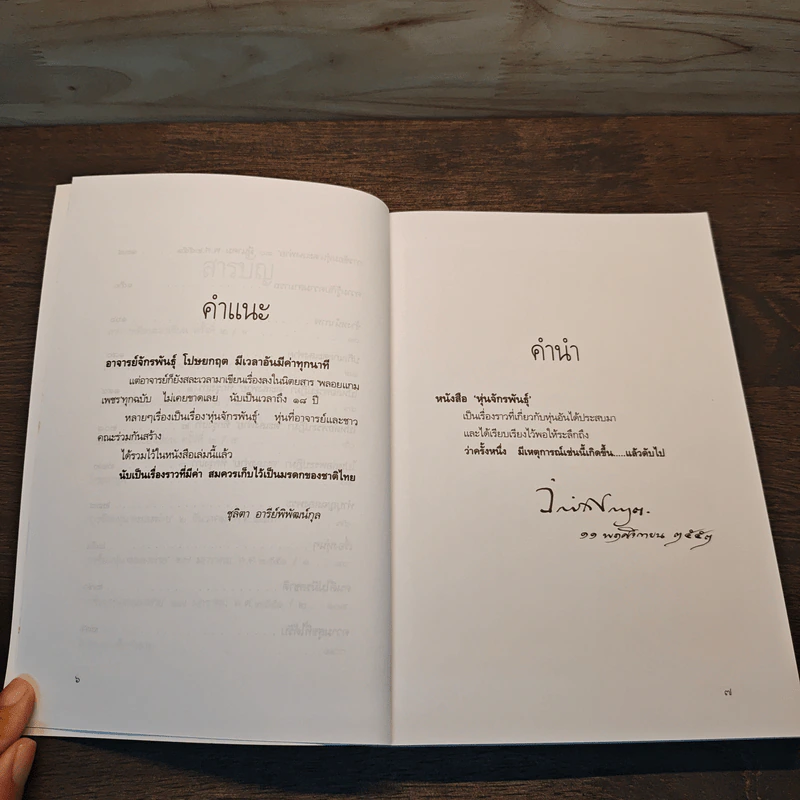 คำแนะ
อาจารย์จักรพันธุ์ โปษยกฤต มีเวลาอันมีค่าทุกนาที
แต่อาจารย์ก็ยังสละเวลามาเขียนเรื่องลงในนิตยสาร พลอยแกม
เพชรทุกฉบับ ไม่เคยขาดเลย นับเป็นเวลาถึง ๑๘ ปี
หลายๆเรื่องเป็นเรื่อง'หุ่นจักรพันธุ์' หุ่นที่อาจารย์และชาว
คณะร่วมกันสร้าง
ได้รวมไว้ในหนังสือเล่มนี้แล้ว
นับเป็นเรื่องราวที่มีค่า สมควรเก็บไว้เป็นมรดกของชาติไทย
ชุลิตา อารีย์พิพัฒน์กุล
๖
คำนำ
หนังสือ 'หุ่นจักรพันธุ์'
เป็นเรื่องราวที่เกี่ยวกับหุ่นอันได้ประสบมา
และได้เรียบเรียงไว้พอให้ระลึกถึง
ว่าครั้งหนึ่ง มีเหตุการณ์เช่นนี้เกิดขึ้น.....แล้วดับไป
๑๑ พฤศจิกายน ๒๕๕๓
๗